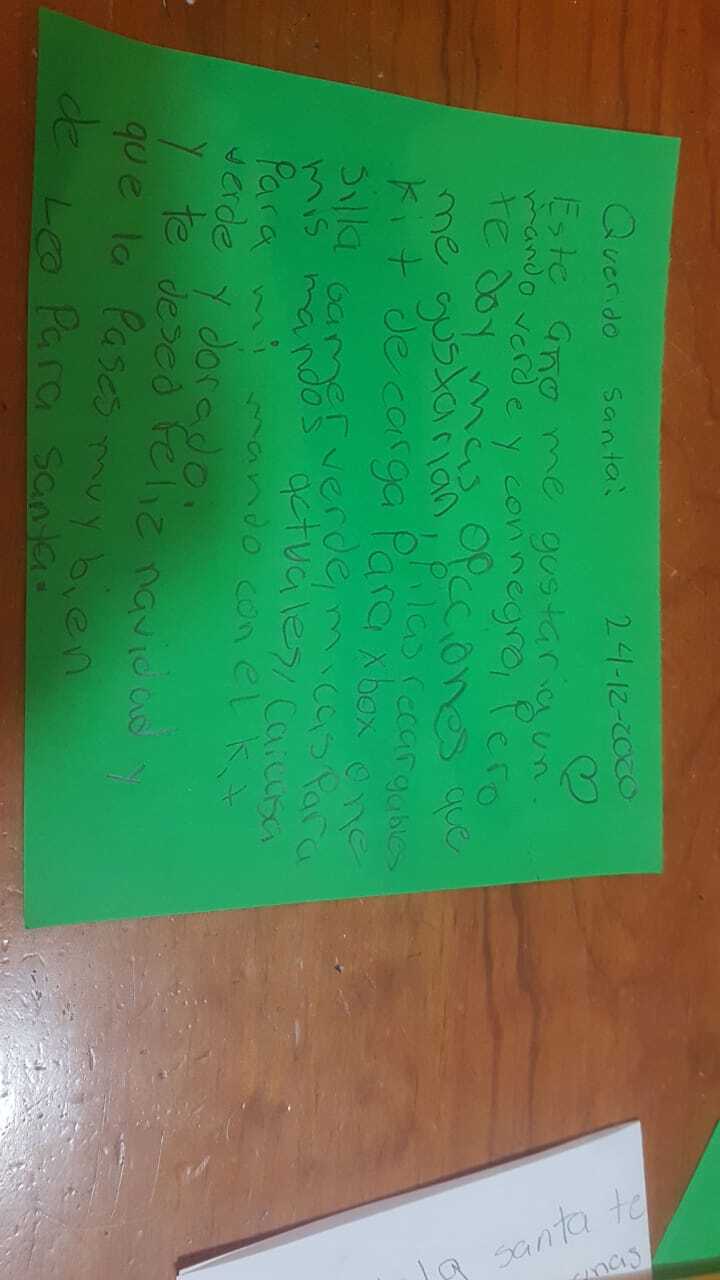 24-12-2020
Querido santa:
Este año me gustaria un
mando verde y con negro, pero
te doy mas opcciones que
me gustarian pilas recargables
kit de carga para xbox one
silla gamer verde, micas para
mis mandos actuales, carcasa
para mi mando con el kit
verde y dorado.
y te deseo feliz navidad y
que la pases muy bien
de Leo para santa.
santa te